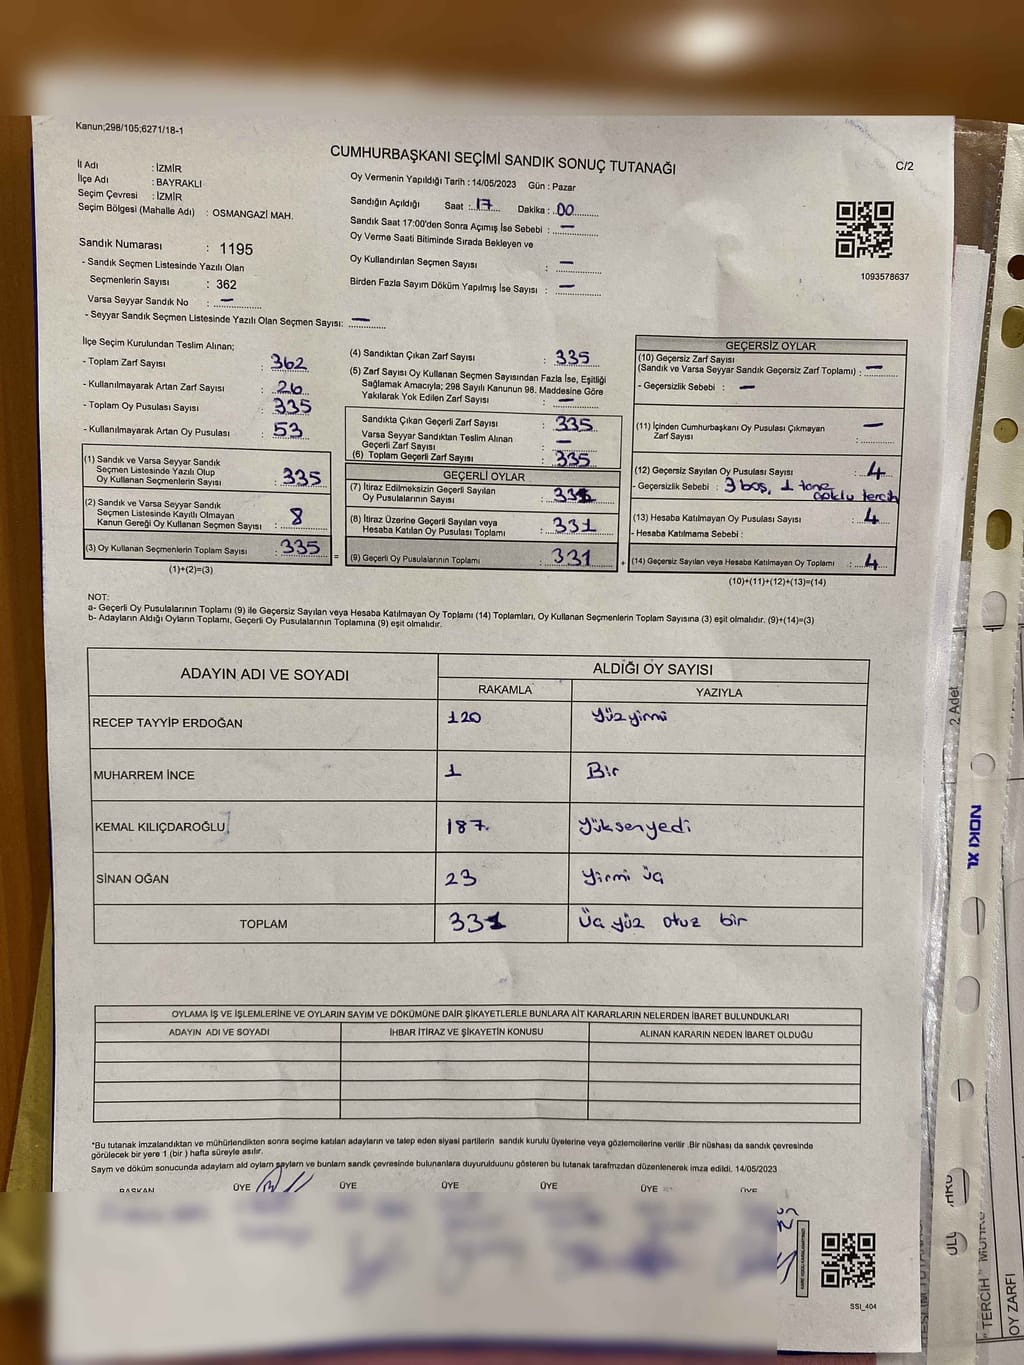 Kanun;298/105;6271/18-1
CUMHURBAŞKANI SEÇİMİ SANDIK SONUÇ TUTANAĞI
C/2
İl Adı : İZMİR
İlçe Adı : BAYRAKLI
Seçim Çevresi : İZMİR
Seçim Bölgesi (Mahalle Adı) : OSMANGAZİ MAH.
Sandık Numarası : 1195
- Sandık Seçmen Listesinde Yazılı Olan
Seçmenlerin Sayısı : 362
Varsa Seyyar Sandık No : —
- Seyyar Sandık Seçmen Listesinde Yazılı Olan Seçmen Sayısı: —
Oy Vermenin Yapıldığı Tarih : 14/05/2023 Gün : Pazar
Sandığın Açıldığı Saat : 17 Dakika : 00
Sandık Saat 17:00'den Sonra Açımış İse Sebebi : —
Oy Verme Saati Bitiminde Sırada Bekleyen ve
Oy Kullandırılan Seçmen Sayısı : —
Birden Fazla Sayım Döküm Yapılmış İse Sayısı : —
1093578637
İlçe Seçim Kurulundan Teslim Alınan;
- Toplam Zarf Sayısı : 362
- Kullanılmayarak Artan Zarf Sayısı : 26
- Toplam Oy Pusulası Sayısı : 335
- Kullanılmayarak Artan Oy Pusulası : 53
(1) Sandık ve Varsa Seyyar Sandık
Seçmen Listesinde Yazılı Olup
Oy Kullanan Seçmenlerin Sayısı : 335
(2) Sandık ve Varsa Seyyar Sandık
Seçmen Listesinde Kayıtlı Olmayan
Kanun Gereği Oy Kullanan Seçmen Sayısı : 8
(3) Oy Kullanan Seçmenlerin Toplam Sayısı : 335
(1)+(2)=(3)
(4) Sandıktan Çıkan Zarf Sayısı : 335
(5) Zarf Sayısı Oy Kullanan Seçmen Sayısından Fazla İse, Eşitliği
Sağlamak Amacıyla; 298 Sayılı Kanunun 98. Maddesine Göre
Yakılarak Yok Edilen Zarf Sayısı : —
Sandıkta Çıkan Geçerli Zarf Sayısı : 335
Varsa Seyyar Sandıktan Teslim Alınan
Geçerli Zarf Sayısı : —
(6) Toplam Geçerli Zarf Sayısı : 335
GEÇERLİ OYLAR
(7) İtiraz Edilmeksizin Geçerli Sayılan
Oy Pusulalarının Sayısı :
(8) İtiraz Üzerine Geçerli Sayılan veya
Hesaba Katılan Oy Pusulası Toplamı : 331
= (9) Geçerli Oy Pusulalarının Toplamı : 331 +
GEÇERSİZ OYLAR
(10) Geçersiz Zarf Sayısı
(Sandık ve Varsa Seyyar Sandık Geçersiz Zarf Toplamı) : —
- Geçersizlik Sebebi : —
(11) İçinden Cumhurbaşkanı Oy Pusulası Çıkmayan
Zarf Sayısı : —
(12) Geçersiz Sayılan Oy Pusulası Sayısı : 4
- Geçersizlik Sebebi : 3 boş, 1 tane
çoklu tercih
(13) Hesaba Katılmayan Oy Pusulası Sayısı : 4
- Hesaba Katılmama Sebebi :
(14) Geçersiz Sayılan veya Hesaba Katılmayan Oy Toplamı : 4
(10)+(11)+(12)+(13)=(14)
NOT:
a- Geçerli Oy Pusulalarının Toplamı (9) ile Geçersiz Sayılan veya Hesaba Katılmayan Oy Toplamı (14) Toplamları, Oy Kullanan Seçmenlerin Toplam Sayısına (3) eşit olmalıdır. (9)+(14)=(3)
b- Adayların Aldığı Oyların Toplamı, Geçerli Oy Pusulalarının Toplamına (9) eşit olmalıdır.
ADAYIN ADI VE SOYADI
ALDIĞI OY SAYISI
RAKAMLA YAZIYLA
RECEP TAYYİP ERDOĞAN 120 Yüzyirmi
MUHARREM İNCE 1 Bir
KEMAL KILIÇDAROĞLU 187 Yüksenyedi
SİNAN OĞAN 23 Yirmi üç
TOPLAM 331 Üç yüz otuz bir
OYLAMA İŞ VE İŞLEMLERİNE VE OYLARIN SAYIM VE DÖKÜMÜNE DAİR ŞİKAYETLERLE BUNLARA AİT KARARLARIN NELERDEN İBARET BULUNDUKLARI
ADAYIN ADI VE SOYADI İHBAR İTİRAZ VE ŞİKAYETİN KONUSU ALINAN KARARIN NEDEN İBARET OLDUĞU
*Bu tutanak imzalandıktan ve mühürlendikten sonra seçime katılan adayların ve talep eden siyasi partilerin sandık kurulu üyelerine veya gözlemcilerine verilir .Bir nüshası da sandık çevresinde
görülecek bir yere 1 (bir ) hafta süreyle asılır.
Sayım ve döküm sonucunda adayların ald oyların sayların ve bunların sandk çevresinde bulunanlara duyurulduunu gösteren bu tutanak tarafmzdan düzenlenerek imza edildi. 14/05/2023
BAŞKAN ÜYE ÜYE ÜYE ÜYE ÜYE ÜYE
SSI_404
2 Adet
NOKI XL
" TERCİH " MÜHRÜ
OY ZARFI